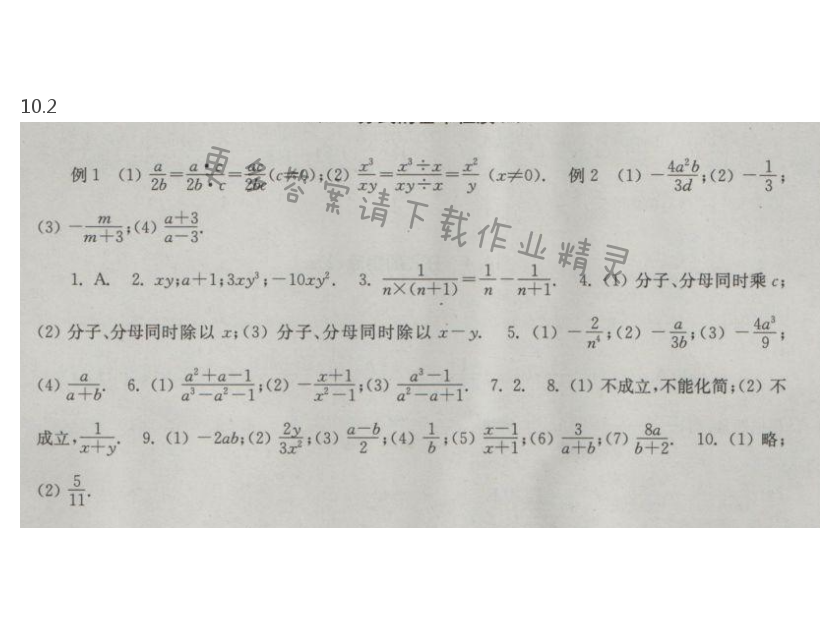 10.2
例1 (1) a/2b=a·c/2b·c=ac/2bc(c≠0);(2) x³/xy=x³÷x/xy÷x=x²/y (x≠0). 例2 (1) -4a²b/3d;(2) -1/3;
(3) -m/m+3;(4) a+3/a-3.
1. A. 2. xy;a+1;3xy³;-10xy². 3. 1/n×(n+1)=1/n-1/n+1. 4. (1) 分子、分母同时乘 c;
(2) 分子、分母同时除以 x;(3) 分子、分母同时除以 x-y. 5. (1) -2/n⁴;(2) -a/3b;(3) -4a³/9;
(4) a/a+b. 6. (1) a²+a-1/a³-a²-1;(2) -x+1/x²-1;(3) a³-1/a²-a+1. 7. 2. 8. (1) 不成立,不能化简;(2) 不
成立,1/x+y. 9. (1) -2ab;(2) 2y/3x²;(3) a-b/2;(4) 1/b;(5) x-1/x+1;(6) 3/a+b;(7) 8a/b+2. 10. (1) 略;
(2) 5/11.
更多答案请下载作业精灵